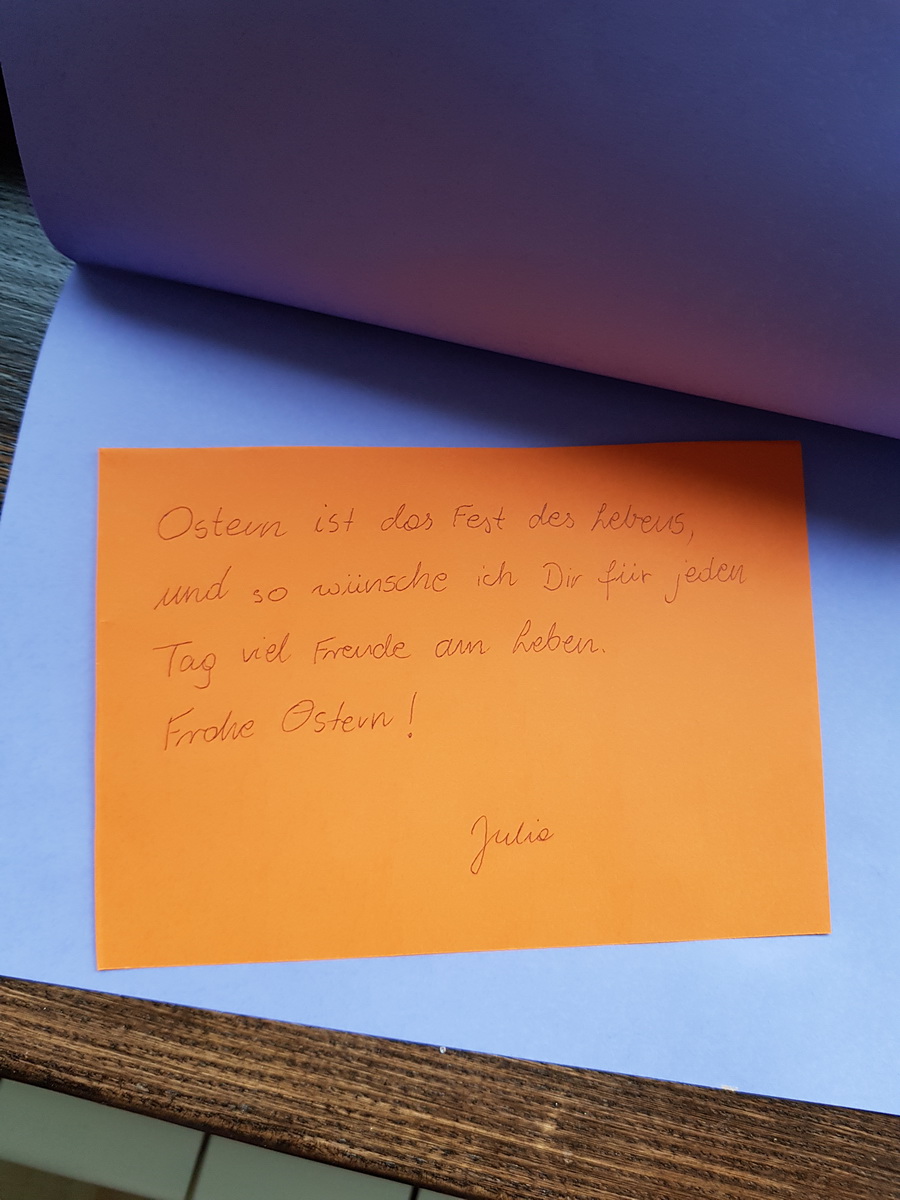 Ostern ist das Fest des Lebens,
und so wünsche ich Dir für jeden
Tag viel Freude am Leben.
Frohe Ostern!
Julia